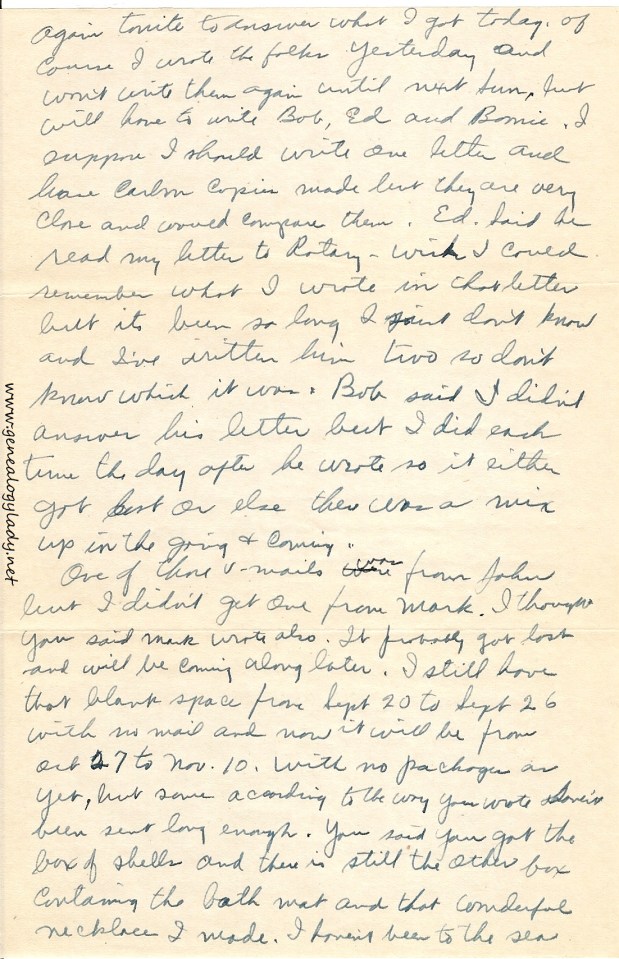 again tonite to answer what I got today. of
course I wrote the folks yesterday and
won't write them again until next Sun, but
will have to write Bob, Ed and Bonnie. I
suppose I should write one letter and
have Carbon Copies made but they are very
close and would compare them. Ed. said he
read my letter to Rotary - wish I could
remember what I wrote in that letter
but its been so long I just don't know
and I've written him two so don't
know which it was. Bob said I didn't
answer his letter but I did each
time the day after he wrote so it either
got lost or else there was a mix
up in the going & coming.
One of those v-mails was from John
but I didn't get one from Mark. I thought
you said Mark wrote also. It probably got lost
and will be coming along later. I still have
that blank space from Sept 20 to Sept 26
with no mail and now it will be from
Oct 27 to Nov. 10. With no packages as
yet, but some according to the way you wrote haven't
been sent long enough. You said you got the
box of shells and there is still the other box
containing the bath mat and that wonderful
necklace I made. I haven't been to the sea
www.genealogylady.net